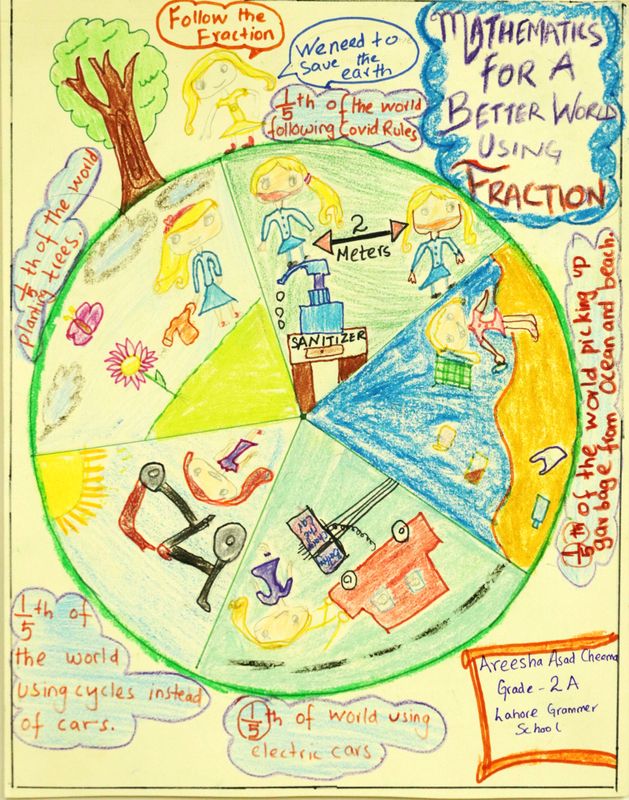 Follow the
Fraction
We need to
save the
earth
MATHEMATICS
FOR A
BETTER WORLD
USING
FRACTION
1/5th of the world
following Covid Rules
1/5th of the world
Planting trees.
2
Meters
SANITIZER
1/5th of the world picking up
garbage from Ocean and beach.
1/5th of
the world
using cycles instead
of cars.
1/5th of world using
electric cars
Areesha Asad Cheema
Grade - 2 A
Lahore Grammer
School